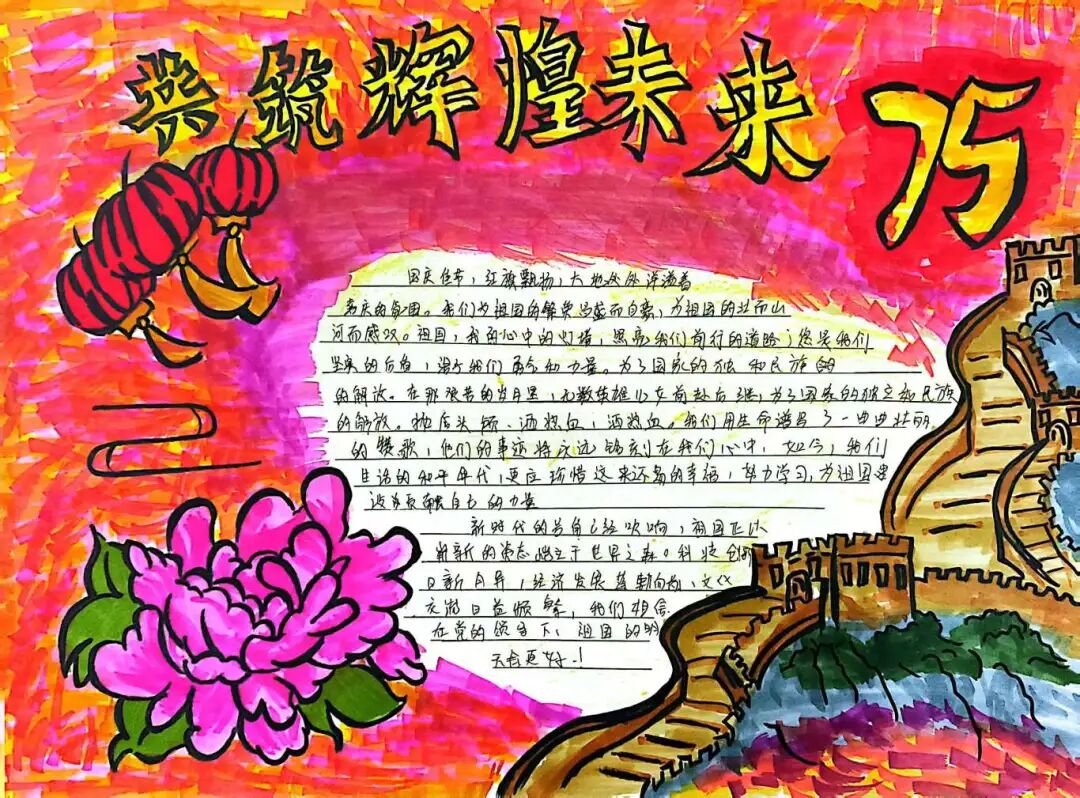 共筑辉煌未来
75
国庆佳节，红旗飘扬，大地处处洋溢着
喜庆的氛围。我们为祖国的繁荣昌盛而自豪，为祖国的壮丽山
河而感叹。祖国，我们心中的灯塔，照亮我们前行的道路；您是我们
坚实的后盾，给予我们勇气和力量。为了国家的独 和民族的
的解放。在那艰苦的岁月里，无数英雄儿女前赴后继，为了国家的独立和民族
的解放。抛头颅、洒热血，洒热血。我们用生命谱写了一曲曲壮丽
的赞歌，他们的事迹将永远铭刻在我们心中，如今，我们
生活的和平年代，更应珍惜这来之不易的幸福，努力学习，为祖国建
设贡献自己的力量
新时代的号角已经吹响，祖国正以
崭新的姿态屹立于世界之林。科技创新
日新月异，经济发展蓬勃向前，文化
交流日益频繁，我们相信
在党的领导下，祖国的明
天会更好！